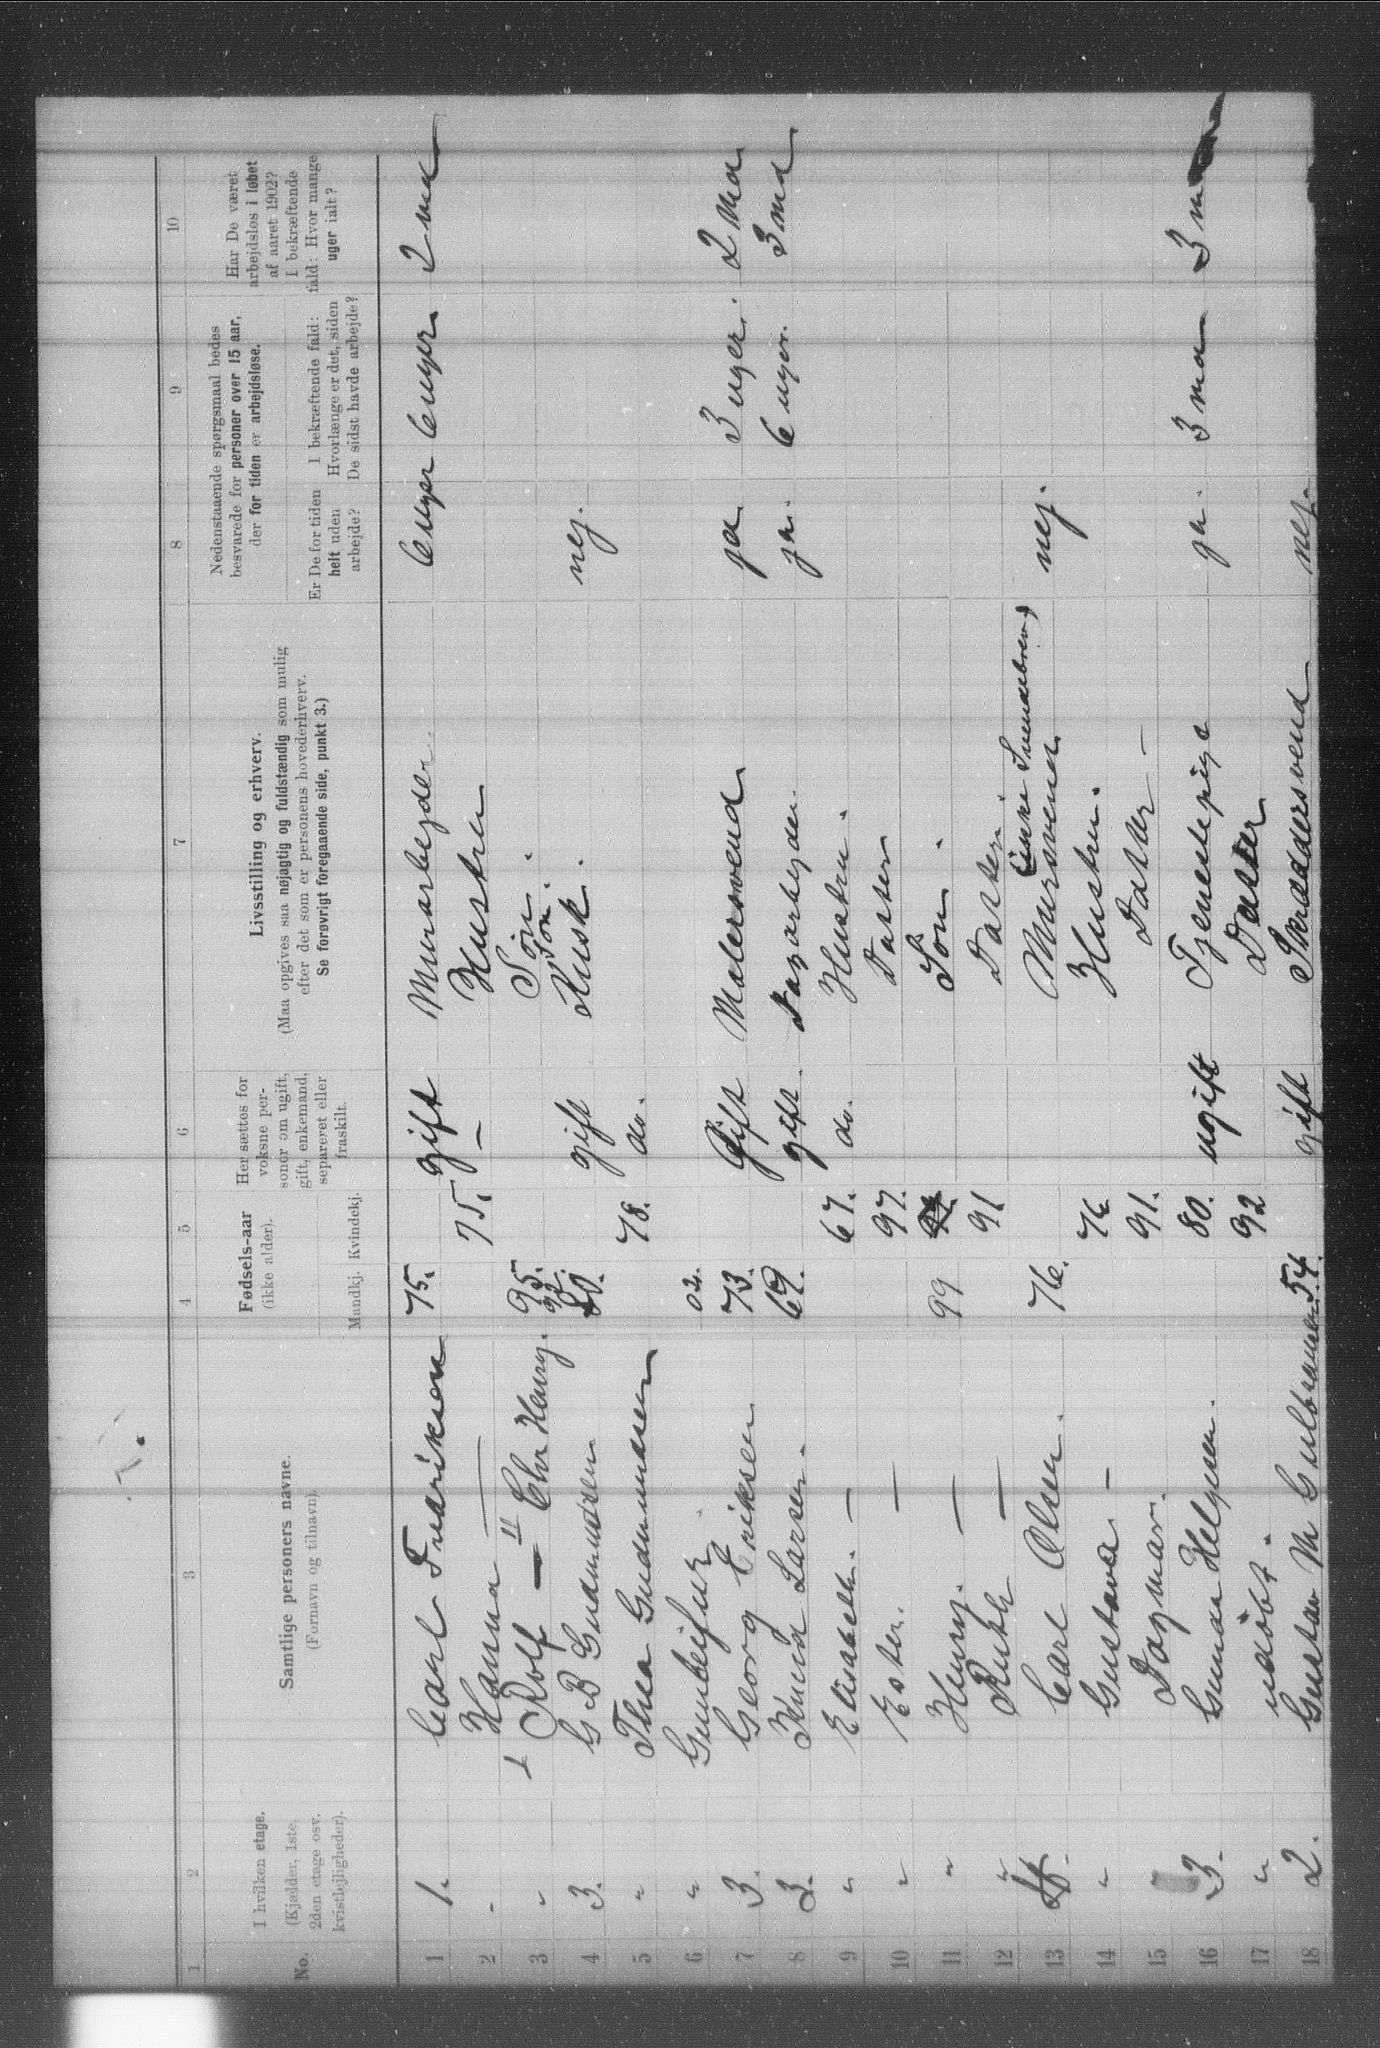 1 2 3 4 5 6 7 8 9 10
No.
I hvilken etage.
(Kjælder, 1ste.
2den etage osv.
kvistlejligheder).
Samtlige personers navne.
(Fornavn og tilnavn).
Fødsels-aar
(ikke alder).
Mandkj. Kvindekj.
Her sættes for
voksne per-
soner om ugift,
gift, enkemand,
separeret eller
fraskilt.
Livsstilling og erhverv.
(Maa opgives saa nøjagtig og fuldstændig som mulig
efter det som er personens hovederhverv.
Se forøvrigt foregaaende side, punkt 3.)
Nedenstaaende spørgsmaal bedes
besvarede for personer over 15 aar,
der for tiden er arbejdsløse.
Er De for tiden
helt uden
arbejde?
I bekræftende fald:
Hvorlænge er det, siden
De sidst havde arbejde?
Har De været
arbejdsløs i løbet
af aaret 1902?
I bekræftende
fald: Hvor mange
uger ialt?
1 1. Carl Fredriksen 75. gift Murarbejder 6 uger 6 uger 2 md
2 - Hanna — 75. — Hustru
3 - Rolf — " Chr Henry. 95. 92. Søn. Søn.
4 3. G B Gudmunsen 80. gift Kusk. nej.
5 " Thea Gudmundsen 78. do.
6 " 02.
7 3. Georg Eriksen 73. Gift Malersvend ja 3 uger. 2 Md.
8 3. Knud Larsen. 69. gift. Dagarbejder. ja. 6 uger. 3 md
9 " Elisabeth. — 67. do. Hustru.
10 " Ester. — 97. Datter
11 " Henry. — 99 Søn.
12 " Ruth — 91 Datter.
13 Carl Olsen. 76. Mursvend (ikke Svendebrev) nej.
14 " Gustava — 76 Hustru.
15 Dagmar. 91. Datter —
16 3. Gunda Helgesen. 80. ugift Tjenestepige ja. 3 md 3 m
17 " udøbt. 92 Datter
18 2. Gustav M Gulbransen 54. gift Skræddersvend nej.